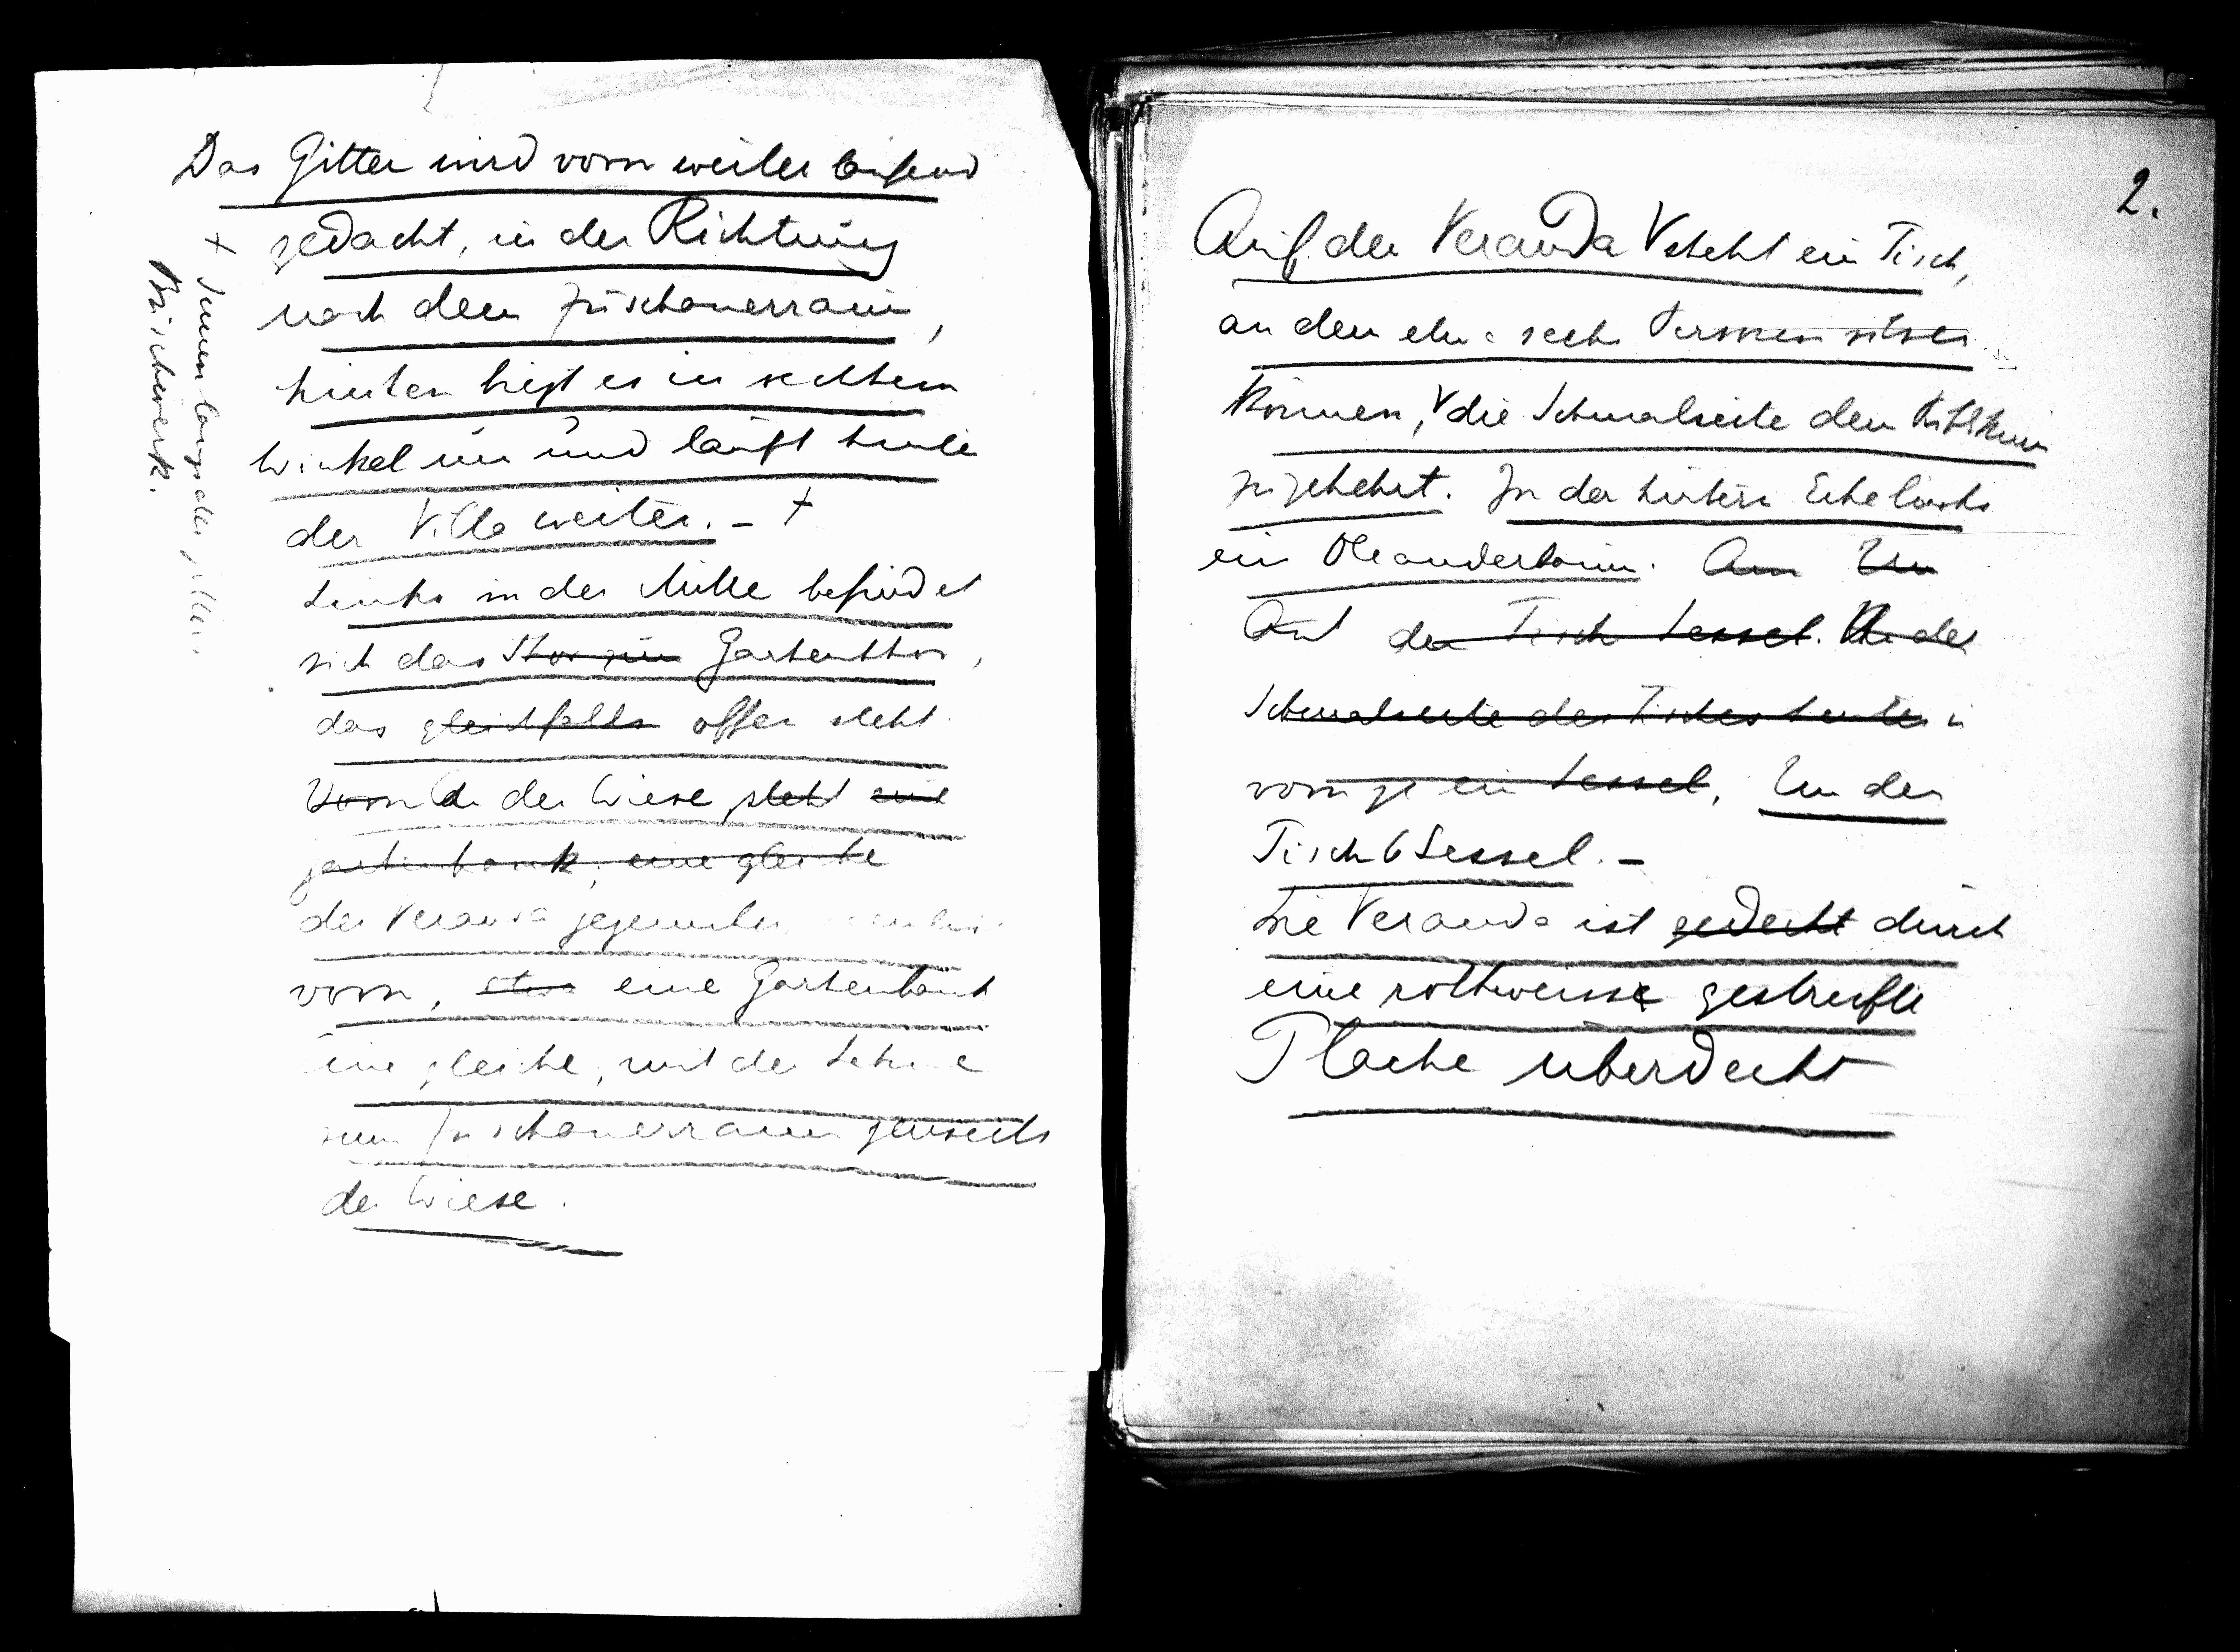 Das Gitter wird vorn weiter laufend
gedacht, in der Richtung
nach dem Zuschauerraum,
hinten biegt es im rechten
Winkel um und läuft hinter
der Villa weiter. – +
Links in der Mitte befindet
sich das Thor zum Gartenthor,
das gleichfalls offen steht
Vorn der Wiese steht eine
Gartenbank, eine gleiche
der Veranda gegenüber
vorn, etwa eine Gartenbank
eine gleiche, mit der Lehne
zum Zuschauerraum jenseits
der Wiese.
+ Innen längs des Gitters
Buschwerk.
2.
Auf der Veranda steht ein Tisch,
an dem etwa sechs Personen sitzen
können, die Schmalseite dem Publikum
zugekehrt. In der hintern Ecke links
ein Oleanderbaum. Am Um
Auf der Tisch Sessel. An der
Schmalseite des Tisches hinten u
vorn je ein Sessel. Um den
Tisch 6 Sessel. –
Die Veranda ist gedeckt durch
eine rothweiss gestreifte
Plache überdeckt